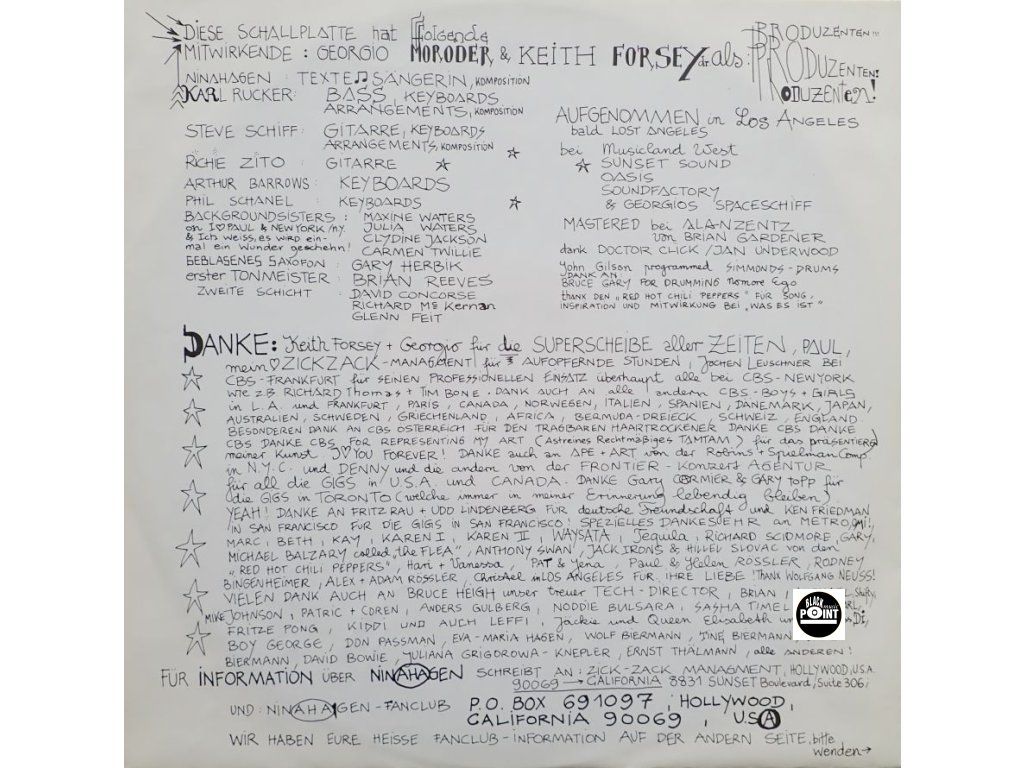 DIESE SCHALLPLATTE hat folgende
MITWIRKENDE: GEORGIO MORODER & KEITH FORSEY als: PRODUZENTEN!!! PRODUZENTEN! PRODUZENTEN!
NINAHAGEN: TEXTE♫SÄNGERIN, KOMPOSITION
KARL RUCKER: BASS, KEYBOARDS
ARRANGEMENTS, KOMPOSITION
STEVE SCHIFF: GITARRE, KEYBOARDS
ARRANGEMENTS, KOMPOSITION
RICHIE ZITO: GITARRE
ARTHUR BARROWS: KEYBOARDS
PHIL SCHANEL: KEYBOARDS
BACKGROUNDSISTERS: MAXINE WATERS
on I♡PAUL & NEWYORK/NY. JULIA WATERS
& Ich weiss, es wird ein- CLYDINE JACKSON
mal ein Wunder geschehn! CARMEN TWILLIE
BEBLASENES SAXOFON: GARY HERBIK
erster TONMEISTER: BRIAN REEVES
ZWEITE SCHICHT: DAVID CONCORSE
RICHARD McKernan
GLENN FEIT
AUFGENOMMEN in LOS ANGELES
bald LOST ANGELES
bei Musicland West
SUNSET SOUND
OASIS
SOUNDFACTORY
& GEORGIOS SPACESCHIFF
MASTERED bei ALANZENTZ
von BRIAN GARDENER
dank DOCTOR CLICK/JAN UNDERWOOD
John Gilson programmed SIMMONDS-DRUMS
DANK AN:
BRUCE GARY FOR DRUMMING Nomore Ego
THANK DEN "RED HOT CHILI PEPPERS" FÜR SONG,
INSPIRATION UND MITWIRKUNG BEI "WAS ES IST"
DANKE: Keith FORSEY + Georgio für die SUPERSCHEIBE aller ZEITEN, PAUL,
mein♡ZICKZACK-MANAGEMENT für AUFOPFERNDE STUNDEN, JOCHEN LEUSCHNER BEI
CBS-FRANKFURT für SEINEN PROFESSIONELLEN EINSATZ überhaupt alle bei CBS-NEWYORK
WIE Z.B. RICHARD Thomas + TIM BONE. DANK AUCH AN alle andern CBS-BOYS + GIRLS
in L.A. und FRANKFURT, PARIS, CANADA, NORWEGEN, ITALIEN, SPANIEN, DANEMARK, JAPAN,
AUSTRALIEN, SCHWEDEN, GRIECHENLAND, AFRICA, BERMUDA-DREIECK, SCHWEIZ, ENGLAND.
BESONDEREN DANK AN CBS ÖSTERREICH FÜR DEN TRAGBAREN HAARTROCKENER DANKE CBS DANKE
CBS DANKE CBS FOR REPRESENTING MY ART (Astreines Rechtmäßiges TAMTAM) für das präsentieren
meiner Kunst I♡YOU FOREVER! DANKE auch an APE + ART von der Robins + Spielman Comp.
in N.Y.C. und DENNY und die andern von der FRONTIER-Konzert AGENTUR
für all die GIGS in U.S.A. und CANADA. DANKE Gary CORMIER & GARY TOPP für
die GIGS in TORONTO (welche immer in meiner Erinnerung lebendig bleiben)
YEAH! DANKE AN FRITZ RAU + UDO LINDENBERG FÜR deutsche Freundschaft und KEN FRIEDMAN
IN SAN FRANCISCO FÜR DIE GIGS IN SAN FRANCISCO! SPEZIELLES DANKESEHR an METRO, MI!,
MARC, BETH, KAY, KAREN I, KAREN II, WAYSATA, Tequila, RICHARD SCIDMORE, GARY,
MICHAEL BALZARY called "the FLEA", ANTHONY SWAN, JACK IRONS & HILLEL SLOVAC von den
"RED HOT CHILI PEPPERS", Hari + Vanessa, "PAT & Yena, Paul & Helen RÖSSLER, RODNEY
BINGENHEIMER, ALEX + ADAM RÖSSLER, Christel in LOS ANGELES FÜR IHRE LIEBE! THANK WOLFGANG NEUSS!
VIELEN DANK AUCH AN BRUCE HEIGH unser treuer TECH-DIRECTOR, BRIAN
MIKE JOHNSON, PATRIC + COREN, ANDERS GULBERG, NODDIE BULSARA, SASHA TIMEL
FRITZE PONG, KIDDI UND AUCH LEFFI, Jackie und Queen Elisabeth DI,
BOY GEORGE, DON PASSMAN, EVA-MARIA HAGEN, WOLF BIERMANN, TINE BIERMANN,
BIERMANN, DAVID BOWIE, YULIANA GRIGOROWA-KNEPLER, ERNST THÄLMANN, alle ANDEREN!
BLACK POINT music
FÜR INFORMATION ÜBER NINAHAGEN SCHREIBT AN: ZICK-ZACK MANAGMENT, HOLLYWOOD, U.S.A.
90069 → CALIFORNIA 8831 SUNSET Boulevard, Suite 306,
UND: NINAHAGEN-FANCLUB P.O. BOX 691097, HOLLYWOOD,
CALIFORNIA 90069, USA
WIR HABEN EURE HEISSE FANCLUB-INFORMATION AUF DER ANDERN SEITE, bitte
wenden→